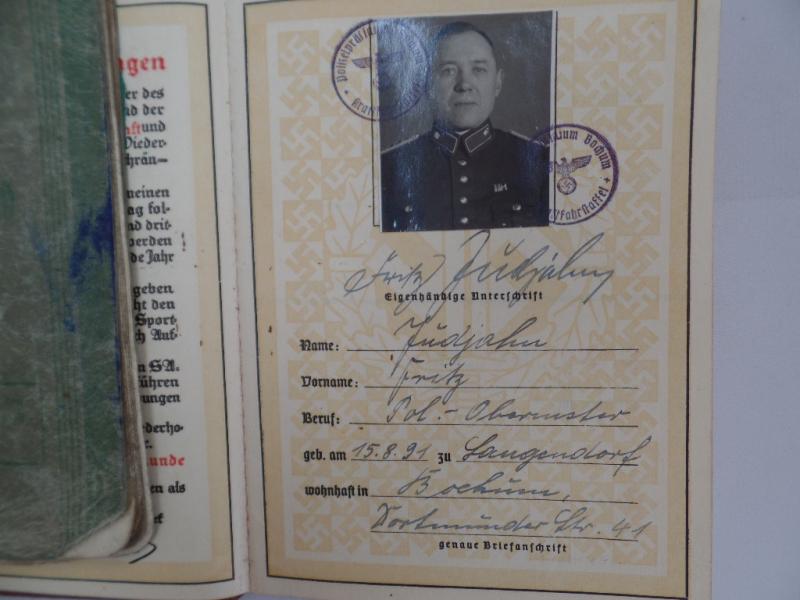 ngen
er des
d der
ft und
Wieder-
chrän-
meinen
ag fol-
nd drit-
werden
de Jahr
geben
ht den
Sport-
ch Auf-
n SA.
führen
ungen
ederho-
r.
unde
en als
Polizeipräsidium
Kraftfahr
ium Bochum
ftfahrstaffel
Fritz Judjahn
Eigenhändige Unterschrift
Name: Judjahn
Vorname: Fritz
Beruf: Pol.-Obermster
geb. am 15.8.91 zu Langendorf
wohnhaft in Bochum,
Dortmunder Str. 41
genaue Briefanschrift